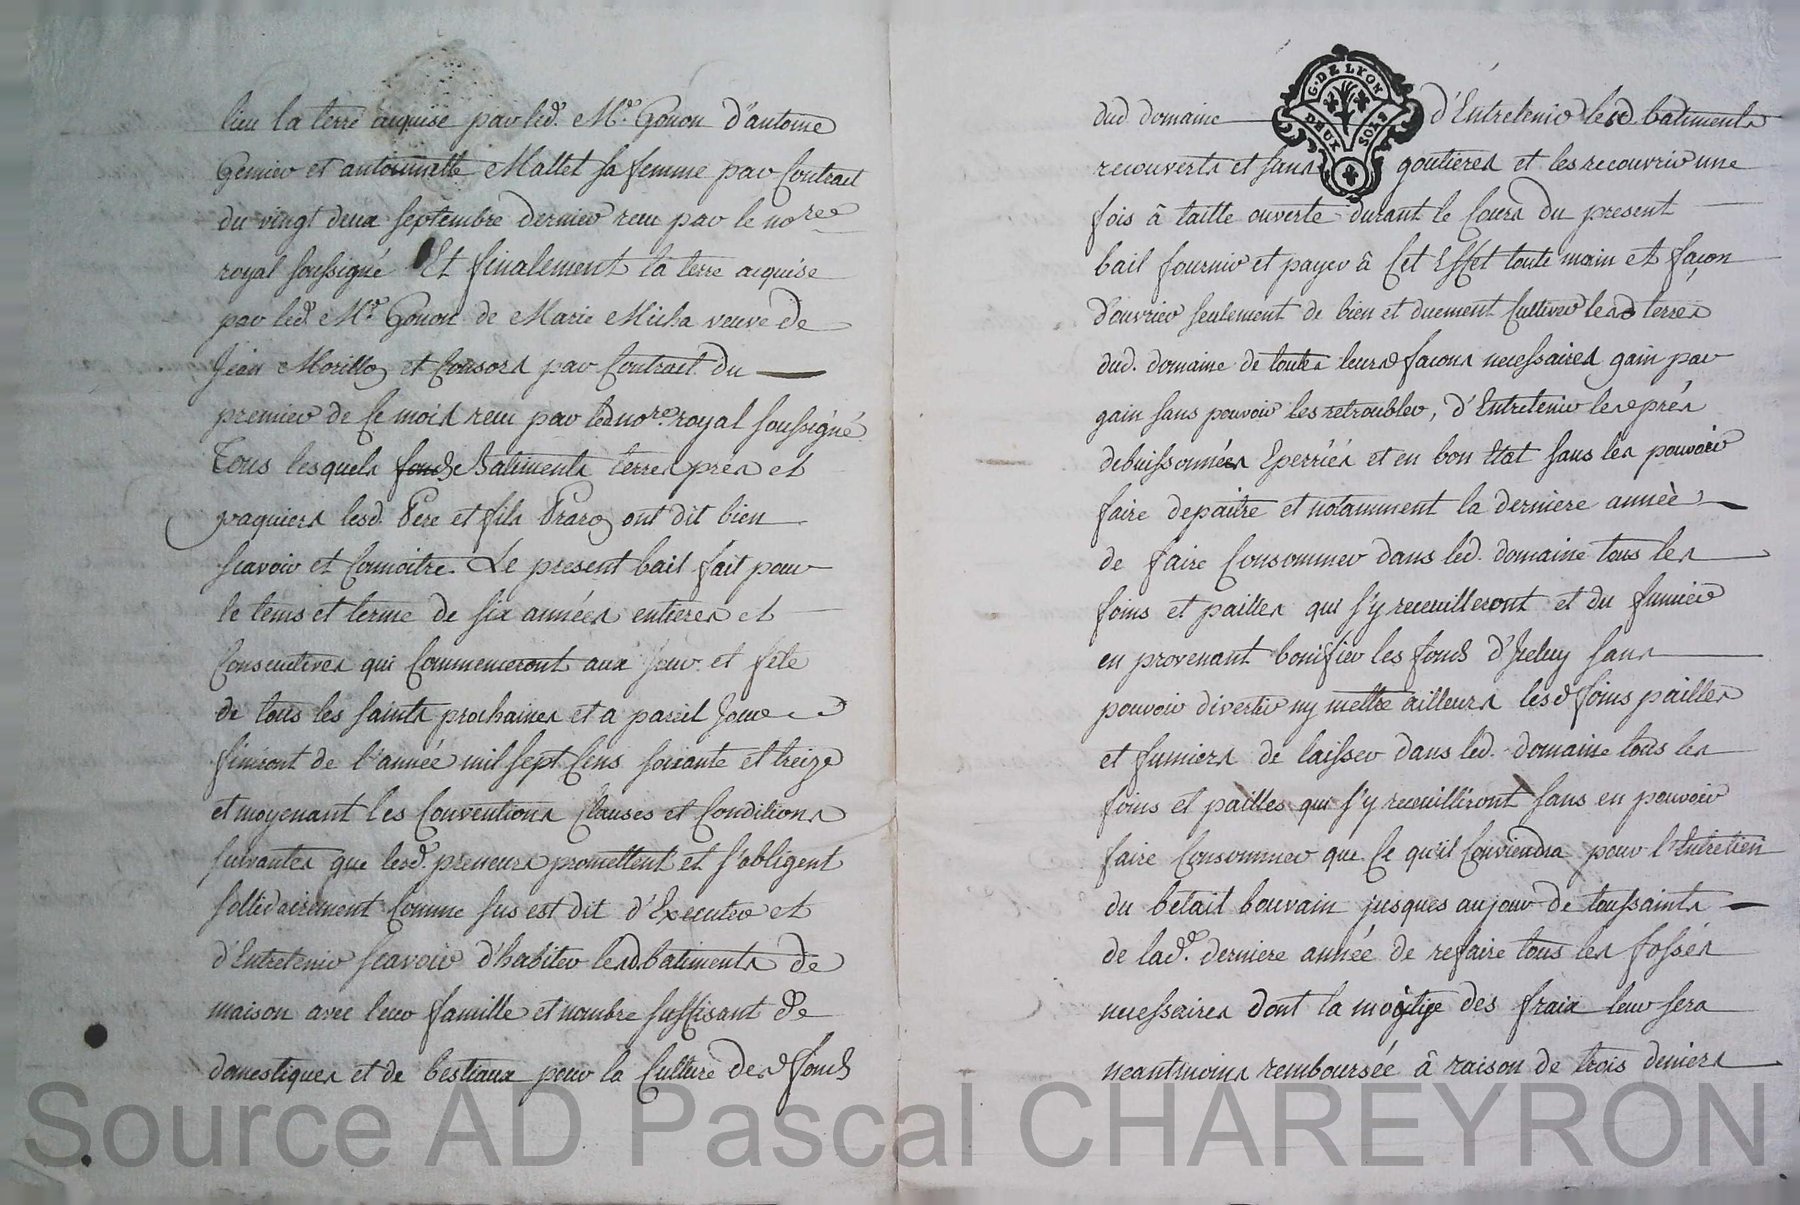 lieu la terre acquise par led. Mr. Gonon d'antoine
Genier et antoinette Mallet sa femme par Contract
du vingt deux septembre dernier reçu par le nore
royal soussigné Et finalement la terre acquise
par led. Mr. Gonon de Marie Micha veuve de
Jean Morillo et Consors par Contract du
premier de ce mois reçu par led nore. royal soussigné
Tous lesquels fonds Batiments terres prés et
paquiers lesd. Pere et fils Praro ont dit bien
scavoir et Connoitre. Le present bail fait pour
le tems et terme de six années entieres et
Consecutives qui Commenceront aux jour et fête
de tous les saints prochaines et a pareil Jour
finiront de l'année mil sept Cens soixante et treize
et moyenant les Conventions Clauses et Conditions
suivantes que lesd. preneurs promettent et s'obligent
sollidairement Comme sus est dit d'Executer et
d'Entretenir scavoir d'habiter lesd. batiments de
maison avec leur famille et nombre suffisant de
domestiques et de bestiaux pour la Culture desd fonds
G. DE LYON
DEUX SOLS
dud domaine d'Entretenir lesd batiments
recouverts et sans goutieres et les recouvrir une
fois â taille ouverte durant le Cours du present
bail fournir et payer â Cet Effet toute main et façon
d'ouvrier seulement de bien et duement Cultiver lesd terres
dud. domaine de toutes leurs façons necessaires gain par
gain sans pouvoir les retroubler, d'Entretenir lesd prés
debuissonnées Eperriés et en bon Etat sans les pouvoir
faire depaitre et notamment la derniere année
de faire Consommer dans led. domaine tous les
foins et pailles qui s'y receuilleront et du fumier
en provenant bonifier les fonds d'Iceluy sans
pouvoir divertir ny mettre ailleurs lesd foins pailles
et fumiers de laisser dans led. domaine tous les
foins et pailles qui s'y receuilliront sans en pouvoir
faire Consommer que Ce qu'il Conviendra pour l'Entretien
du betail bouvain jusques au jour de toussaints
de lad. derniere année de refaire tous les fossés
necessaires dont la moytiye des fraix leur sera
neantmoins remboursée â raison de trois deniers
Source AD Pascal CHAREYRON